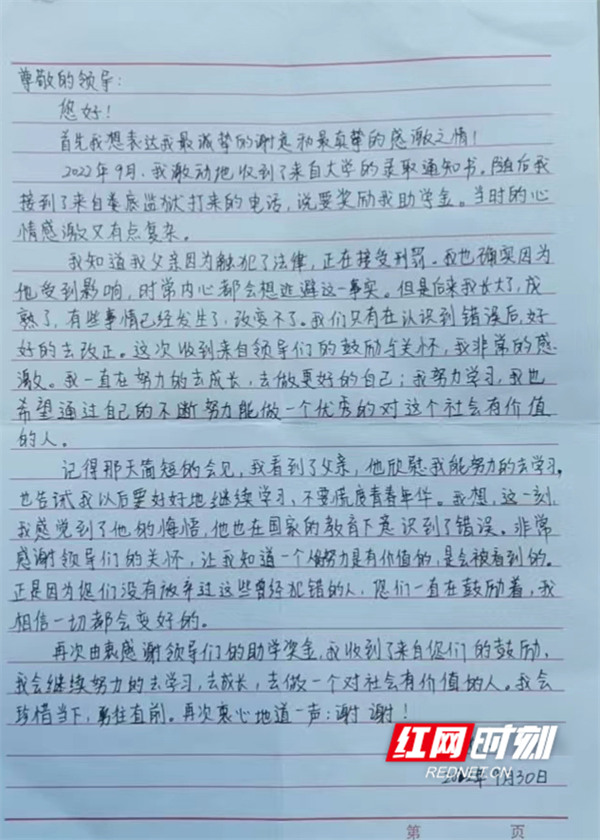 尊敬的领导:
您好!
首先我想表达我最诚挚的谢意和最真挚的感激之情!
2022年9月,我激动地收到了来自大学的录取通知书。随后我
接到了来自娄底监狱打来的电话,说要奖励我助学金。当时的心
情感激又有点复杂。
我知道我父亲因为触犯了法律,正在接受刑罚。我也确实因为
他受到影响,时常内心都会想逃避这一事实。但是后来我长大了,成
熟了,有些事情已经发生了,改变不了。我们只有在认识到错误后,好
好的去改正。这次收到来自领导们的鼓励与关怀,我非常的感
激。我一直在努力的去成长,去做更好的自己;我努力学习,我也
希望通过自己的不断努力能做一个优秀的对这个社会有价值
的人。
记得那天简短的会见,我看到了父亲,他欣慰我能努力的去学习,
也告试我以后要好好地继续学习,不要荒废青春年华。我想,这一刻,
我感觉到了他的悔悟,他也在国家的教育下意识到了错误。非常
感谢领导们的关怀,让我知道一个人努力是有价值的,是会被看到的。
正是因为您们没有放弃过这些曾经犯错的人,您们一直在鼓励着,我
相信一切都会变好的。
再次由衷感谢领导们的助学奖金,我收到了来自您们的鼓励,
我会继续努力的去学习,去成长,去做一个对社会有价值的人。我会
珍惜当下,勇往直前。再次衷心地道一声:谢谢!
红网时刻
REDNET.CN
月30日
第 页